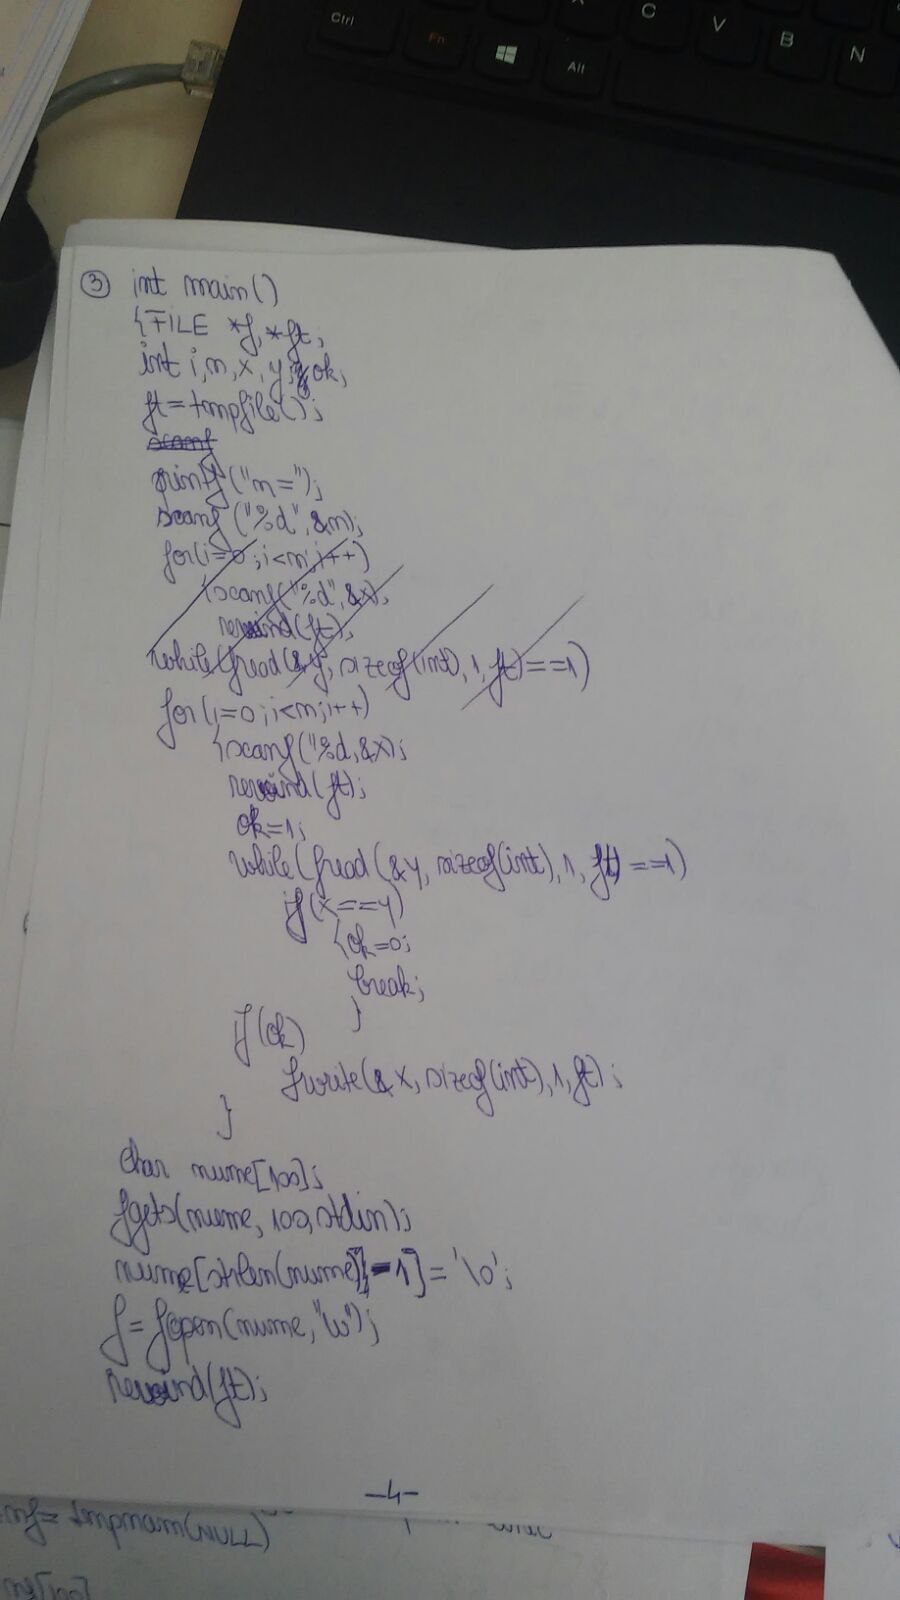 Ctrl
Fn
Alt
C
V
B
N
3 int main()
{FILE *f,*ft;
int i,n,x,y,ok;
ft=tmpfile();
scanf
printf("n=");
scanf("%d",&n);
for(i=0;i<n;i++)
{scanf("%d",&x);
rewind(ft);
while(fread(&y,sizeof(int),1,ft)==1)
for(i=0;i<n;i++)
{scanf("%d,&x);
rewind(ft);
ok=1;
while(fread(&y,sizeof(int),1,ft)==1)
if(x==y)
{ok=0;
break;
}
if(ok)
fwrite(&x,sizeof(int),1,ft);
}
char nume[100];
fgets(nume,100,stdin);
nume[strlen(nume)-1]='\0';
f=fopen(nume,"w");
rewind(ft);
-4-